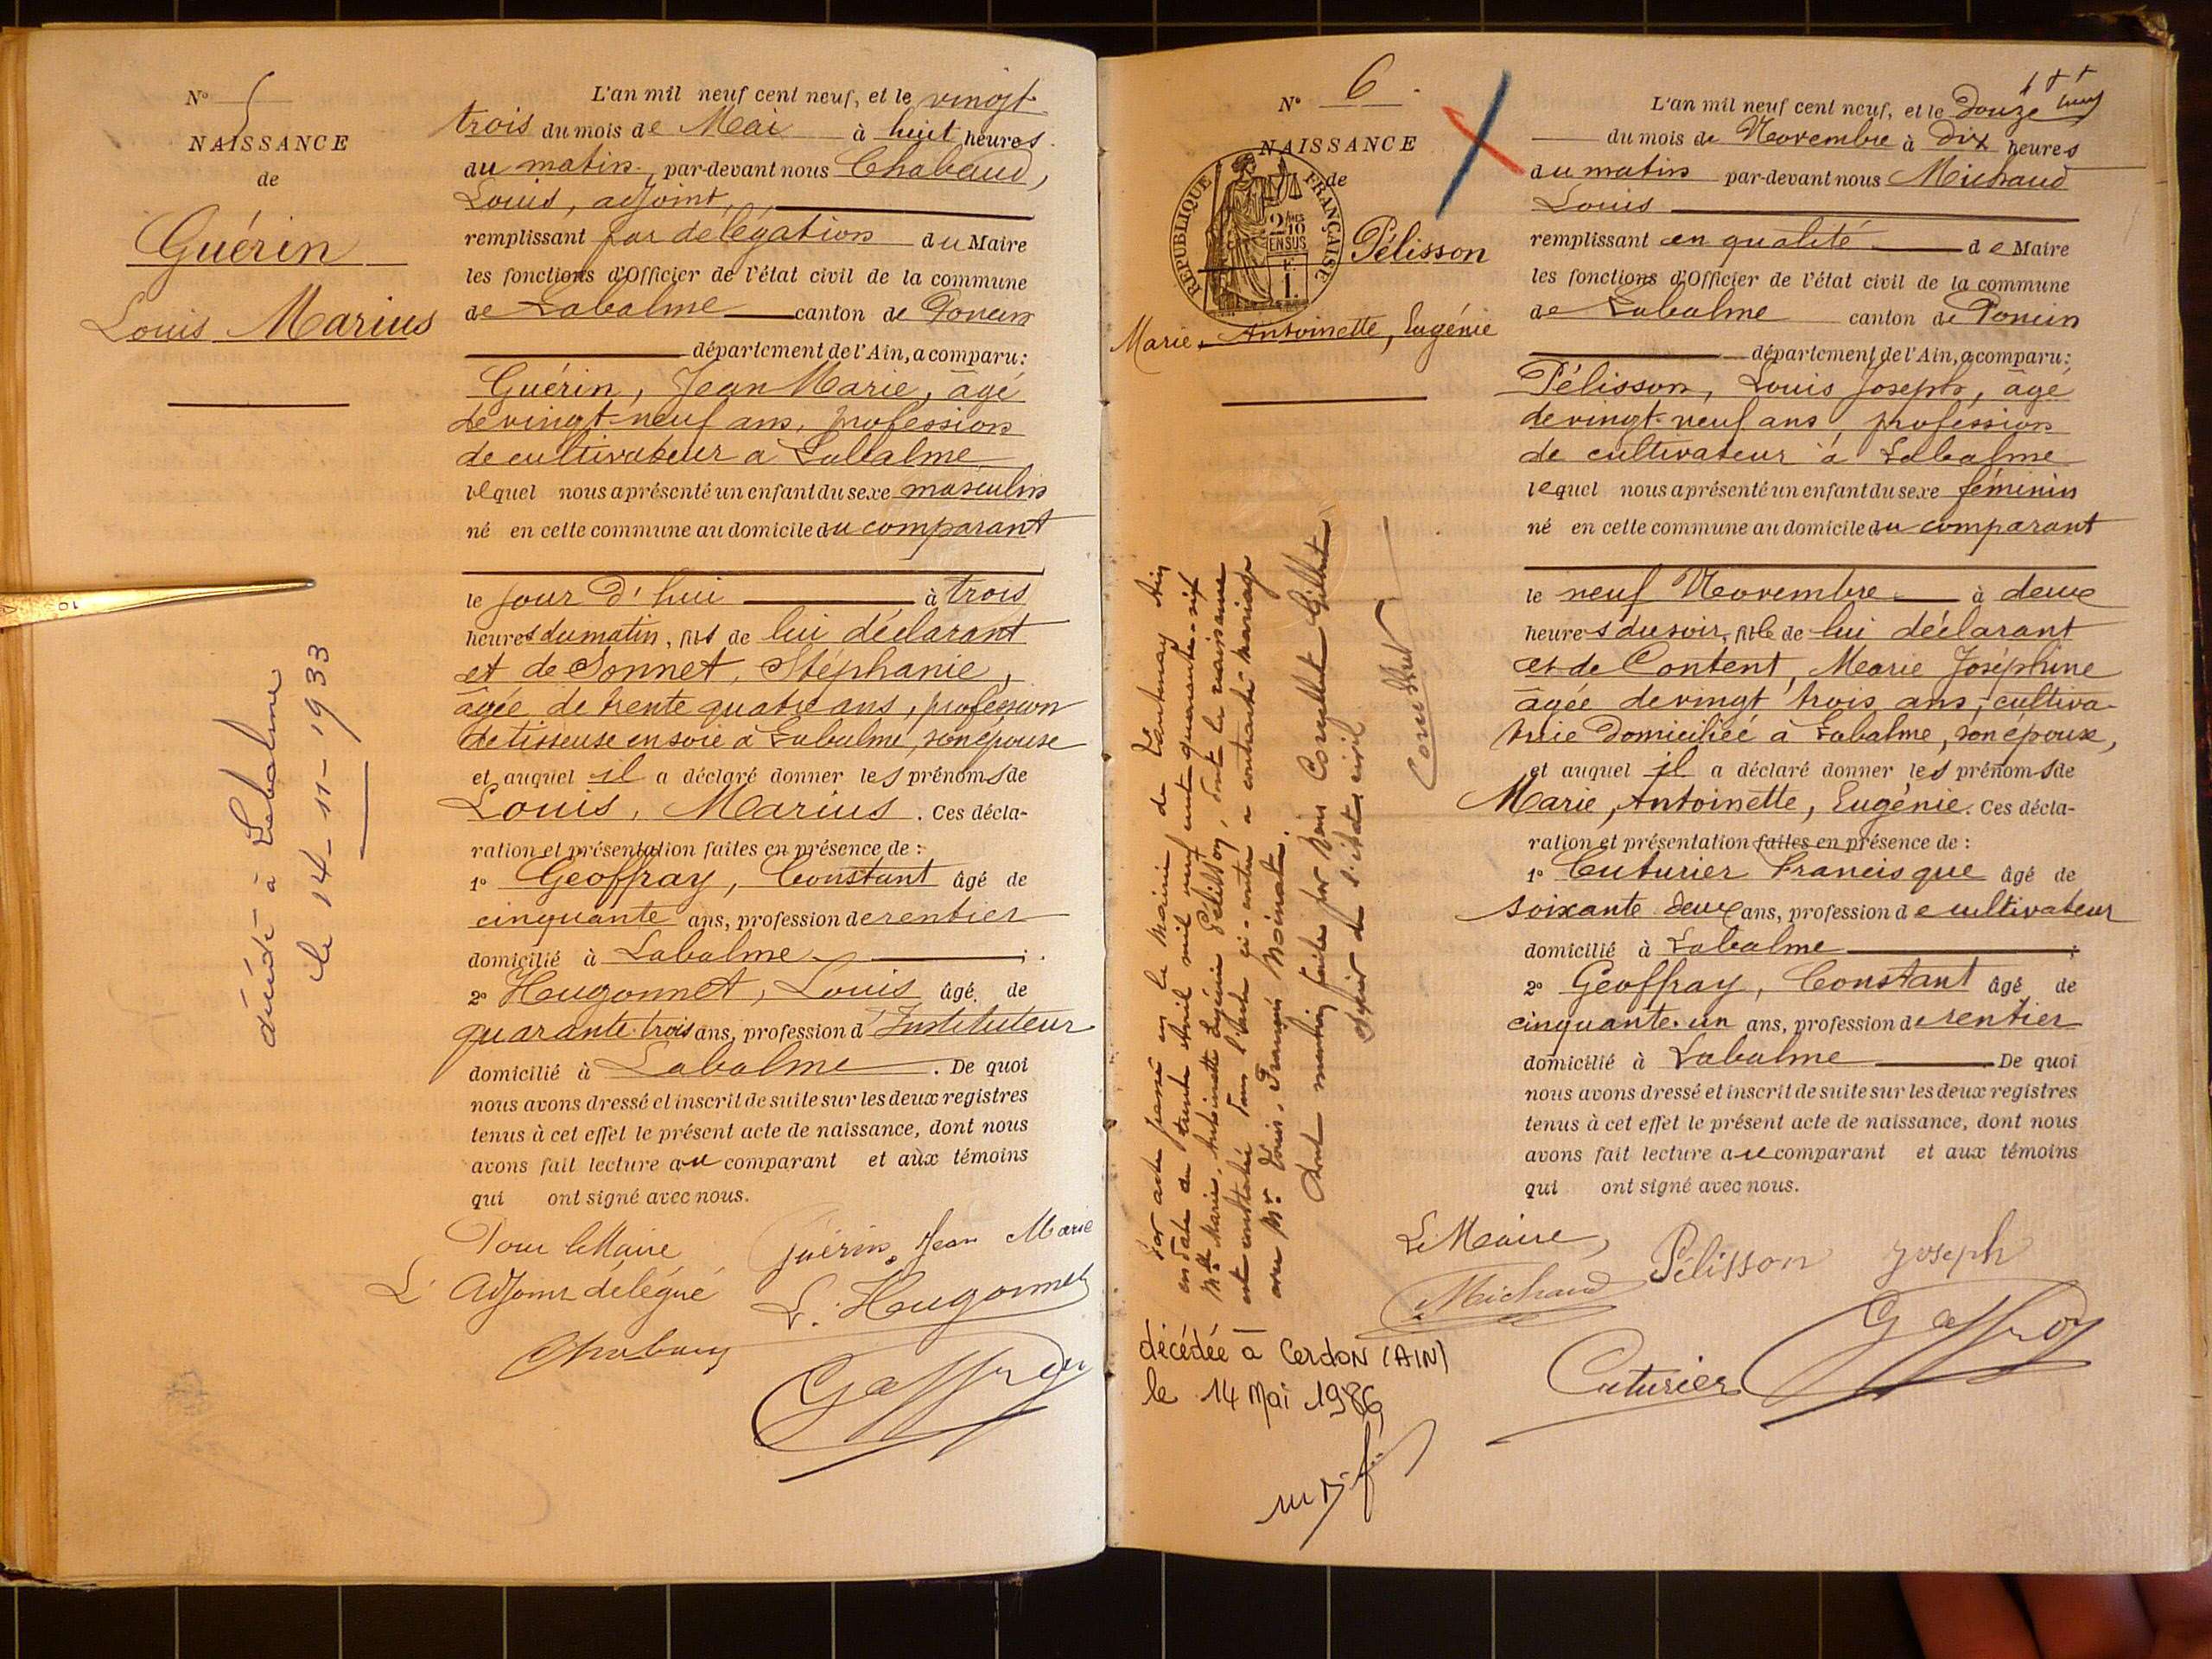 N° 5
NAISSANCE
de
Guérin
Louis Marius
décédé à Labalme
le 14-11-1933
L'an mil neuf cent neuf, et le vingt
trois du mois de Mai à huit heures
du matin, par-devant nous Chabaud,
Louis, adjoint,
remplissant par délégation du Maire
les fonctions d'Officier de l'état civil de la commune
de Labalme canton de Poncin
département de l'Ain, a comparu:
Guérin, Jean Marie, âgé
de vingt-neuf ans, profession
de cultivateur à Labalme
lequel nous a présenté un enfant du sexe masculin
né en cette commune au domicile du comparant
le jour d'hui à trois
heures du matin, fils de lui déclarant
et de Sonnet, Stéphanie,
âgée de trente quatre ans, profession
de tisseuse en soie à Labalme, son épouse
et auquel il a déclaré donner les prénoms de
Louis, Marius. Ces décla-
ration et présentation faites en présence de :
1° Geoffray, Constant âgé de
cinquante ans, profession de rentier
domicilié à Labalme ;
2° Hugonnet, Louis âgé de
quarante trois ans, profession d'Instituteur
domicilié à Labalme. De quoi
nous avons dressé et inscrit de suite sur les deux registres
tenus à cet effet le présent acte de naissance, dont nous
avons fait lecture au comparant et aux témoins
qui ont signé avec nous.
Pour le Maire Guérin Jean Marie
L'Adjoint délégué L. Hugonnet
Chabaud
Geoffray
N° 6
NAISSANCE
de
RÉPUBLIQUE FRANÇAISE
2/10 EN SUS
1.
Pélisson
Marie Antoinette, Eugénie
Par acte passé en la mairie de Lantenay Ain
en date du trente Avril mil neuf cent quarante-six
Mlle Marie, Antoinette Eugénie Pélisson, dont la naissance
est constatée dans l'acte ci-contre a contracté mariage
avec Mr. Louis, François Moinat.
Dont mention faite par Nous Corsellut Gilbert
officier de l'état civil
décédée à Cerdon (AIN)
le 14 Mai 1986
L'an mil neuf cent neuf, et le douze
du mois de Novembre à dix heures
du matin par-devant nous Michaud
Louis
remplissant en qualité de Maire
les fonctions d'Officier de l'état civil de la commune
de Labalme canton de Poncin
département de l'Ain, a comparu:
Pélisson, Louis Joseph, âgé
de vingt-neuf ans, profession
de cultivateur à Labalme
lequel nous a présenté un enfant du sexe féminin
né en cette commune au domicile du comparant
le neuf Novembre à deux
heures du soir, fille de lui déclarant
et de Content, Marie Joséphine
âgée de vingt trois ans, cultiva-
trice domiciliée à Labalme, son épouse,
et auquel il a déclaré donner les prénoms de
Marie, Antoinette, Eugénie. Ces décla-
ration et présentation faites en présence de :
1° Cuturier Francisque âgé de
soixante deux ans, profession de cultivateur
domicilié à Labalme ;
2° Geoffray, Constant âgé de
cinquante-un ans, profession de rentier
domicilié à Labalme De quoi
nous avons dressé et inscrit de suite sur les deux registres
tenus à cet effet le présent acte de naissance, dont nous
avons fait lecture au comparant et aux témoins
qui ont signé avec nous.
Le Maire,
Michaud Pélisson Joseph
Cuturier Geoffray